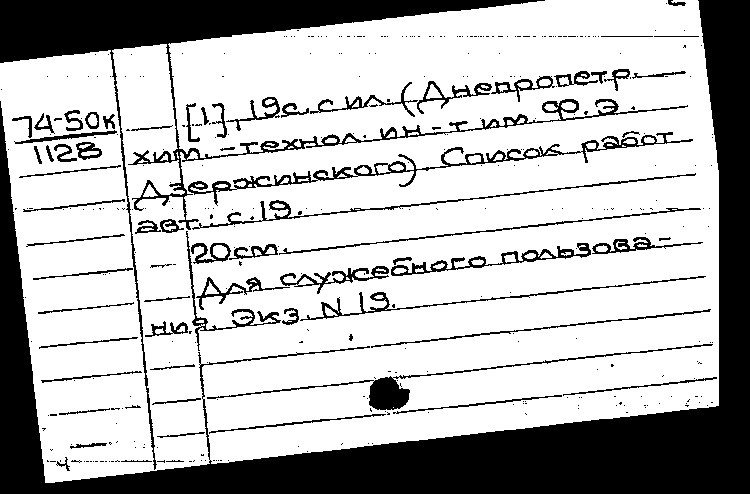 74-50к
1128
[1], 19с. с ил. (Днепропетр.
хим.-технол. ин-т им. Ф.Э.
Дзержинского). Список работ
авт.: с.19.
20см.
Для служебного пользова-
ния. Экз. N 19.